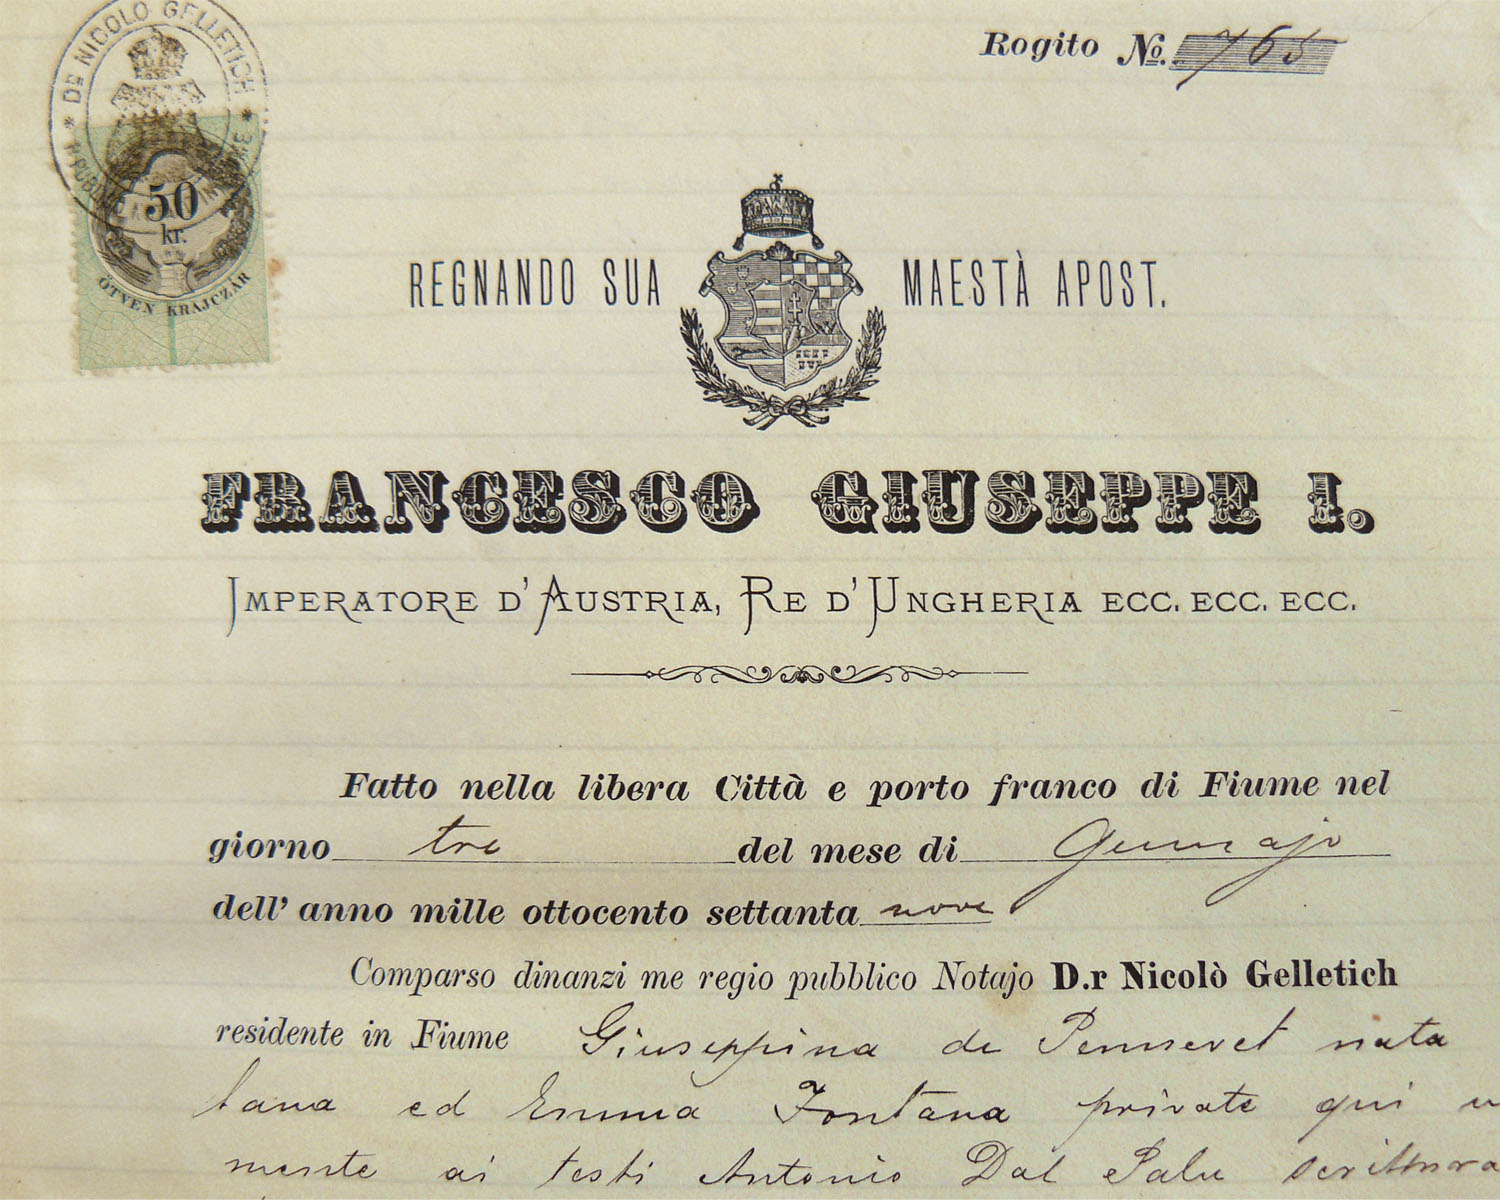 Dr NICOLO GELLETICH
50
kr.
ÖTVEN KRAJCZÁR
Rogito No. 765
REGNANDO SUA MAESTÀ APOST.
FRANCESCO GIUSEPPE I.
IMPERATORE D'AUSTRIA, RE D'UNGHERIA ECC. ECC. ECC.
Fatto nella libera Città e porto franco di Fiume nel
giorno tre del mese di Gennajo
dell' anno mille ottocento settanta nove
Comparso dinanzi me regio pubblico Notajo D.r Nicolò Gelletich
residente in Fiume Giuseppina de Pennevet nata
tana ed Emma Fontana private qui
mente ai testi Antonio Dal Palu scrittura